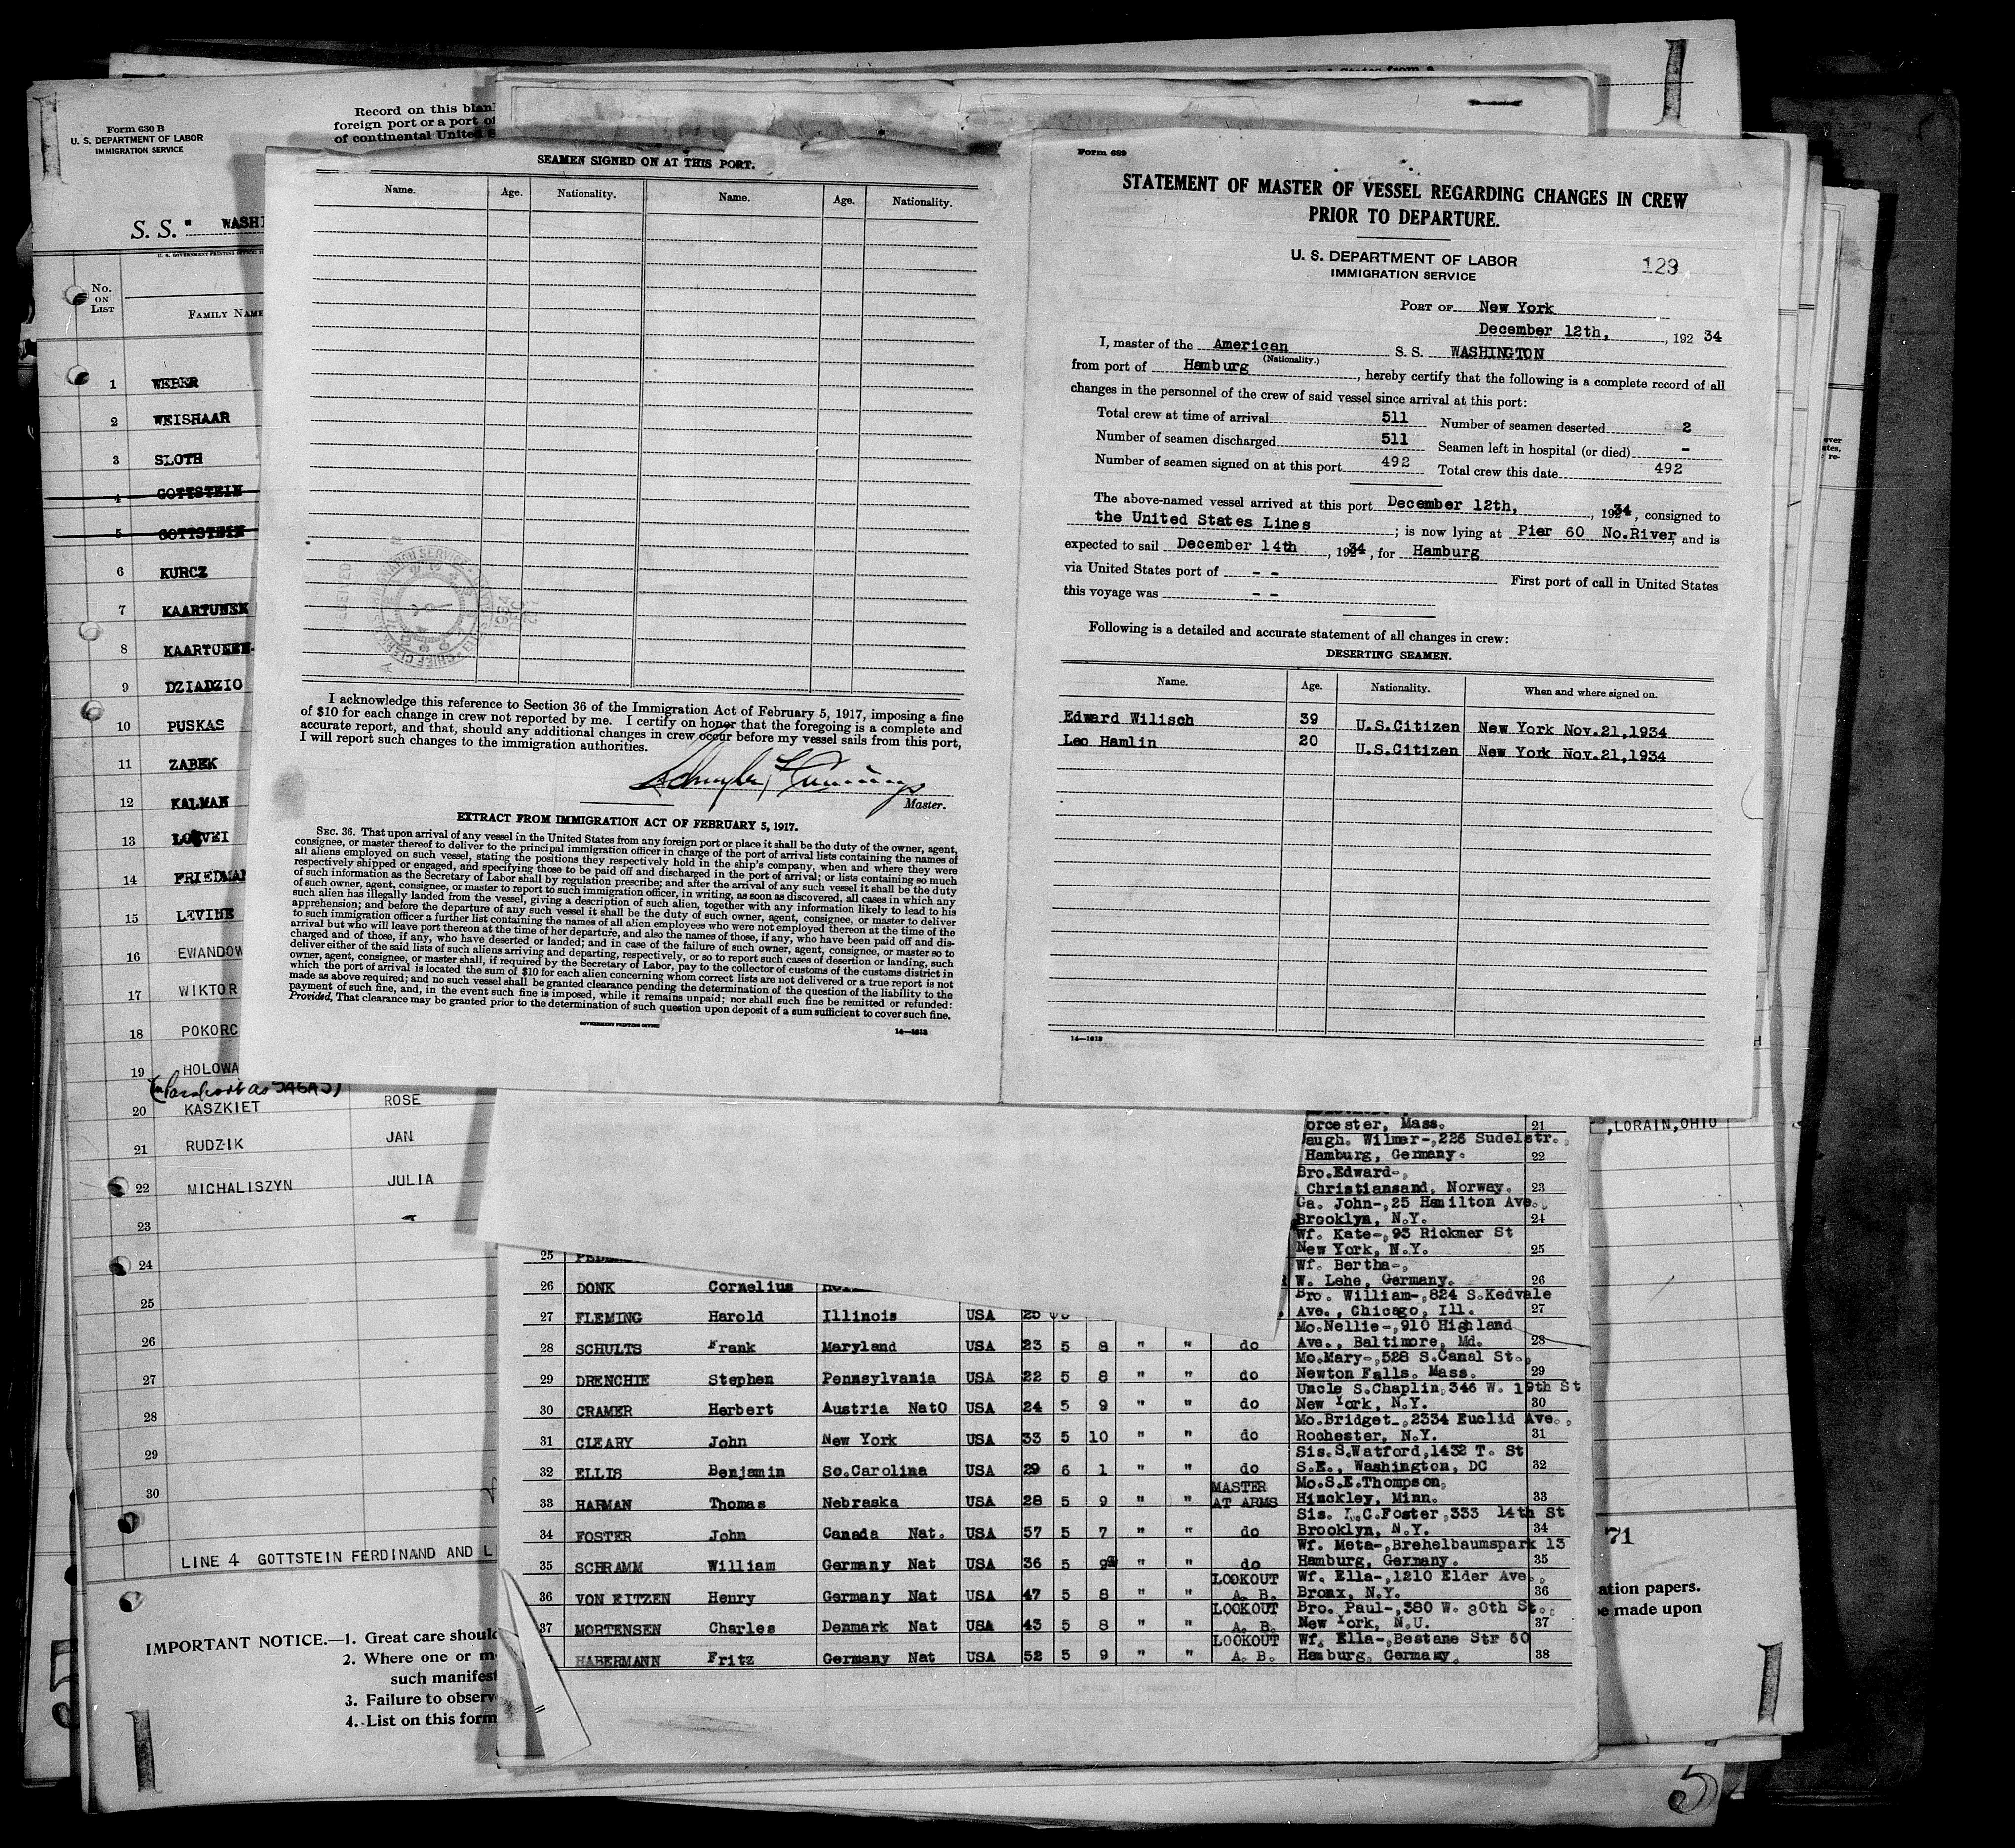 Form 630 B
U. S. DEPARTMENT OF LABOR
IMMIGRATION SERVICE
Record on this blan
foreign port or a port of
of continental United S
S. S. " WASHI
No.
ON
LIST
FAMILY NAME
1 WEBER
2 WEISHAAR
3 SLOTH
4 GOTTSTEIN
5 GOTTSTEIN
6 KURCZ
7 KAARTUNEN
8 KAARTUNEN
9 DZIADZIO
10 PUSKAS
11 ZABEK
12 KALMAN
13
14 FRIEDMAN
15 LEVINE
16 EWANDOW
17 WIKTOR
18 POKORC
19 HOLOWA
20 KASZKIET ROSE
21 RUDZIK JAN
22 MICHALISZYN JULIA
23
24
25
26
27
28
29
30
LINE 4 GOTTSTEIN FERDINAND AND L
IMPORTANT NOTICE.—1. Great care shoul
2. Where one or m
such manifest
3. Failure to observ
4. List on this form
SEAMEN SIGNED ON AT THIS PORT.
Name. Age. Nationality. Name. Age. Nationality.
I acknowledge this reference to Section 36 of the Immigration Act of February 5, 1917, imposing a fine
of $10 for each change in crew not reported by me. I certify on honor that the foregoing is a complete and
accurate report, and that, should any additional changes in crew occur before my vessel sails from this port,
I will report such changes to the immigration authorities.
Master.
EXTRACT FROM IMMIGRATION ACT OF FEBRUARY 5, 1917.
SEC. 36. That upon arrival of any vessel in the United States from any foreign port or place it shall be the duty of the owner, agent,
consignee, or master thereof to deliver to the principal immigration officer in charge of the port of arrival lists containing the names of
all aliens employed on such vessel, stating the positions they respectively hold in the ship's company, when and where they were
respectively shipped or engaged, and specifying those to be paid off and discharged in the port of arrival; or lists containing so much
of such information as the Secretary of Labor shall by regulation prescribe; and after the arrival of any such vessel it shall be the duty
of such owner, agent, consignee, or master to report to such immigration officer, in writing, as soon as discovered, all cases in which any
such alien has illegally landed from the vessel, giving a description of such alien, together with any information likely to lead to his
apprehension; and before the departure of any such vessel it shall be the duty of such owner, agent, consignee, or master to deliver
to such immigration officer a further list containing the names of all alien employees who were not employed thereon at the time of the
arrival but who will leave port thereon at the time of her departure, and also the names of those, if any, who have been paid off and dis-
charged and of those, if any, who have deserted or landed; and in case of the failure of such owner, agent, consignee, or master so to
deliver either of the said lists of such aliens arriving and departing, respectively, or so to report such cases of desertion or landing, such
owner, agent, consignee, or master shall, if required by the Secretary of Labor, pay to the collector of customs of the customs district in
which the port of arrival is located the sum of $10 for each alien concerning whom correct lists are not delivered or a true report is not
made as above required; and no such vessel shall be granted clearance pending the determination of the question of the liability to the
payment of such fine, and, in the event such fine is imposed, while it remains unpaid; nor shall such fine be remitted or refunded:
Provided, That clearance may be granted prior to the determination of such question upon deposit of a sum sufficient to cover such fine.
GOVERNMENT PRINTING OFFICE 14—1613
Form 689
STATEMENT OF MASTER OF VESSEL REGARDING CHANGES IN CREW
PRIOR TO DEPARTURE.
U. S. DEPARTMENT OF LABOR
IMMIGRATION SERVICE
129
PORT OF New York
December 12th, , 192 34
I, master of the American S. S. WASHINGTON
(Nationality.)
from port of Hamburg , hereby certify that the following is a complete record of all
changes in the personnel of the crew of said vessel since arrival at this port:
Total crew at time of arrival 511 Number of seamen deserted 2
Number of seamen discharged 511 Seamen left in hospital (or died) -
Number of seamen signed on at this port 492 Total crew this date 492
The above-named vessel arrived at this port December 12th, , 1934, consigned to
the United States Lines ; is now lying at Pier 60 No.River, and is
expected to sail December 14th , 1934, for Hamburg
via United States port of - - First port of call in United States
this voyage was - -
Following is a detailed and accurate statement of all changes in crew:
DESERTING SEAMEN.
Name. Age. Nationality. When and where signed on.
Edward Wilisch 39 U.S.Citizen New York Nov.21,1934
Leo Hamlin 20 U.S.Citizen New York Nov.21,1934
14—1613
orcester, Mass. 21
,LORAIN,OHIO
augh. Wilmer-,226 Sudelstr.,
Hamburg, Germany. 22
Bro.Edward-,
Christiansand, Norway. 23
Ca. John-,25 Hamilton Ave.,
Brooklyn, N.Y. 24
Wf. Kate-,93 Rickmer St
25 New York, N.Y. 25
Wf. Bertha-,
26 DONK Cornelius W. Lehe, Germany. 26
Bro. William-,824 S.Kedvale
27 FLEMING Harold Illinois USA 25 Ave., Chicago, Ill. 27
Mo.Nellie-,910 Highland
28 SCHULTS Frank Maryland USA 23 5 8 " " do Ave., Baltimore, Md. 28
Mo.Mary-,528 S.Canal St.,
29 DRENCHIE Stephen Pennsylvania USA 22 5 8 " " do Newton Falls. Mass. 29
Uncle S.Chaplin,346 W. 19th St
30 CRAMER Herbert Austria NatO USA 24 5 9 " " do New York, N.Y. 30
Mo.Bridget-,2334 Euclid Ave.,
31 CLEARY John New York USA 33 5 10 " " do Rochester, N.Y. 31
Sis.S.Watford,1432 T. St
32 ELLIS Benjamin So.Carolina USA 29 6 1 " " do S.E., Washington, DC 32
MASTER Mo.S.E.Thompson,
33 HARMAN Thomas Nebraska USA 28 5 9 " " AT ARMS Hinckley, Minn. 33
Sis. L.C.Foster,333 14th St
34 FOSTER John Canada Nat. USA 57 5 7 " " do Brooklyn, N.Y. 34
Wf. Meta-,Brehelbaumspark 13
35 SCHRAMM William Germany Nat USA 36 5 9 " " do Hamburg, Germany. 35
LOOKOUT Wf. Ella-,1210 Elder Ave.,
36 VON EITZEN Henry Germany Nat USA 47 5 8 " " A. B. Bronx, N.Y. 36
LOOKOUT Bro. Paul-,380 W. 30th St.,
37 MORTENSEN Charles Denmark Nat USA 43 5 8 " " A. B. New York, N.U. 37
LOOKOUT Wf. Ella-,Bestane Str 60
HABERMANN Fritz Germany Nat USA 52 5 9 " " A. B. Hamburg, Germany. 38
71
ation papers.
e made upon
5